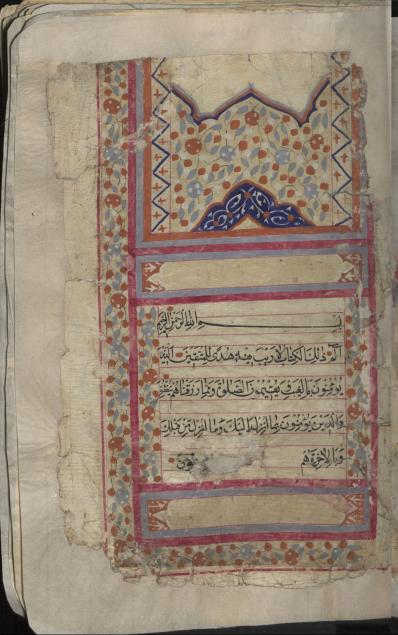 بسم الله الرحمن الرحيم
الم ذلك الكتاب لا ريب فيه هدى للمتقين الذين
يؤمنون بالغيب ويقيمون الصلوة ومما رزقناهم ينفقون
والذين يؤمنون بما انزل اليك وما انزل من قبلك
وبالاخرة هم